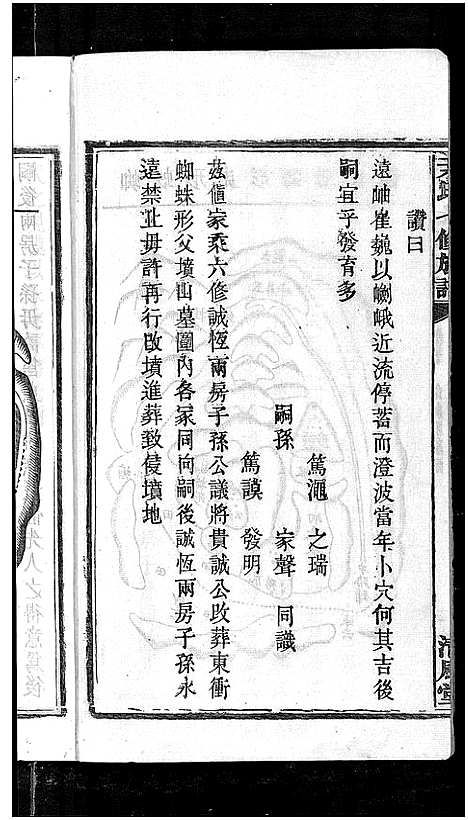 七修族譜
清風堂
讚曰
遠岫崔巍以巀峨近流停蓄而澄波當年卜穴何其吉後
嗣宜乎發育多
篤澠 之瑞
嗣孫 家聲 同識
篤謨 發明
茲值家乘六修誠恆兩房子孫公議將貴誠公改葬東衝
蜘蛛形父墳山墓圍內各冢同向嗣後誠恆兩房子孫永
遠禁止毋許再行改墳進葬致侵墳地